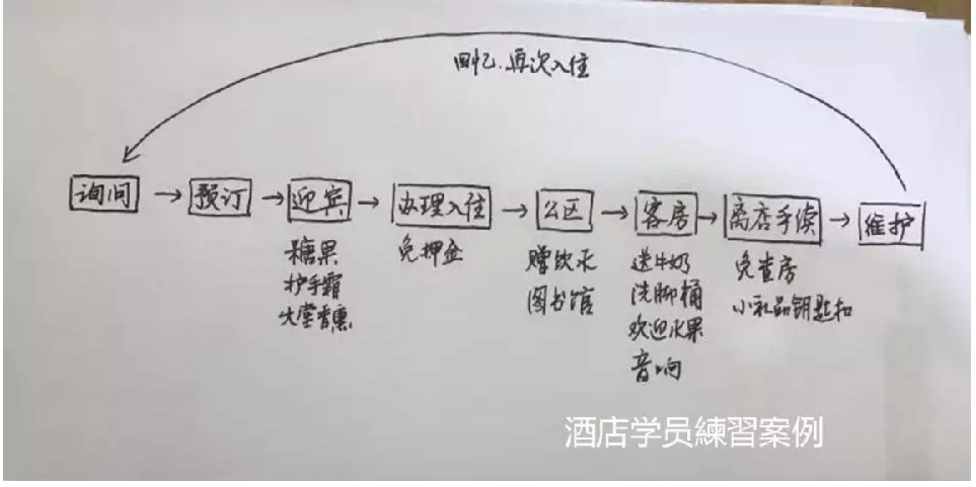 回忆.再次入住
询问 → 预订 → 迎宾 → 办理入住 → 公区 → 客房 → 离店手续 → 维护
糖果
护手霜
大堂香熏
免押金
赠饮水
图书馆
送牛奶
洗脚桶
欢迎水果
音响
免查房
小礼品钥匙扣
酒店学员練習案例